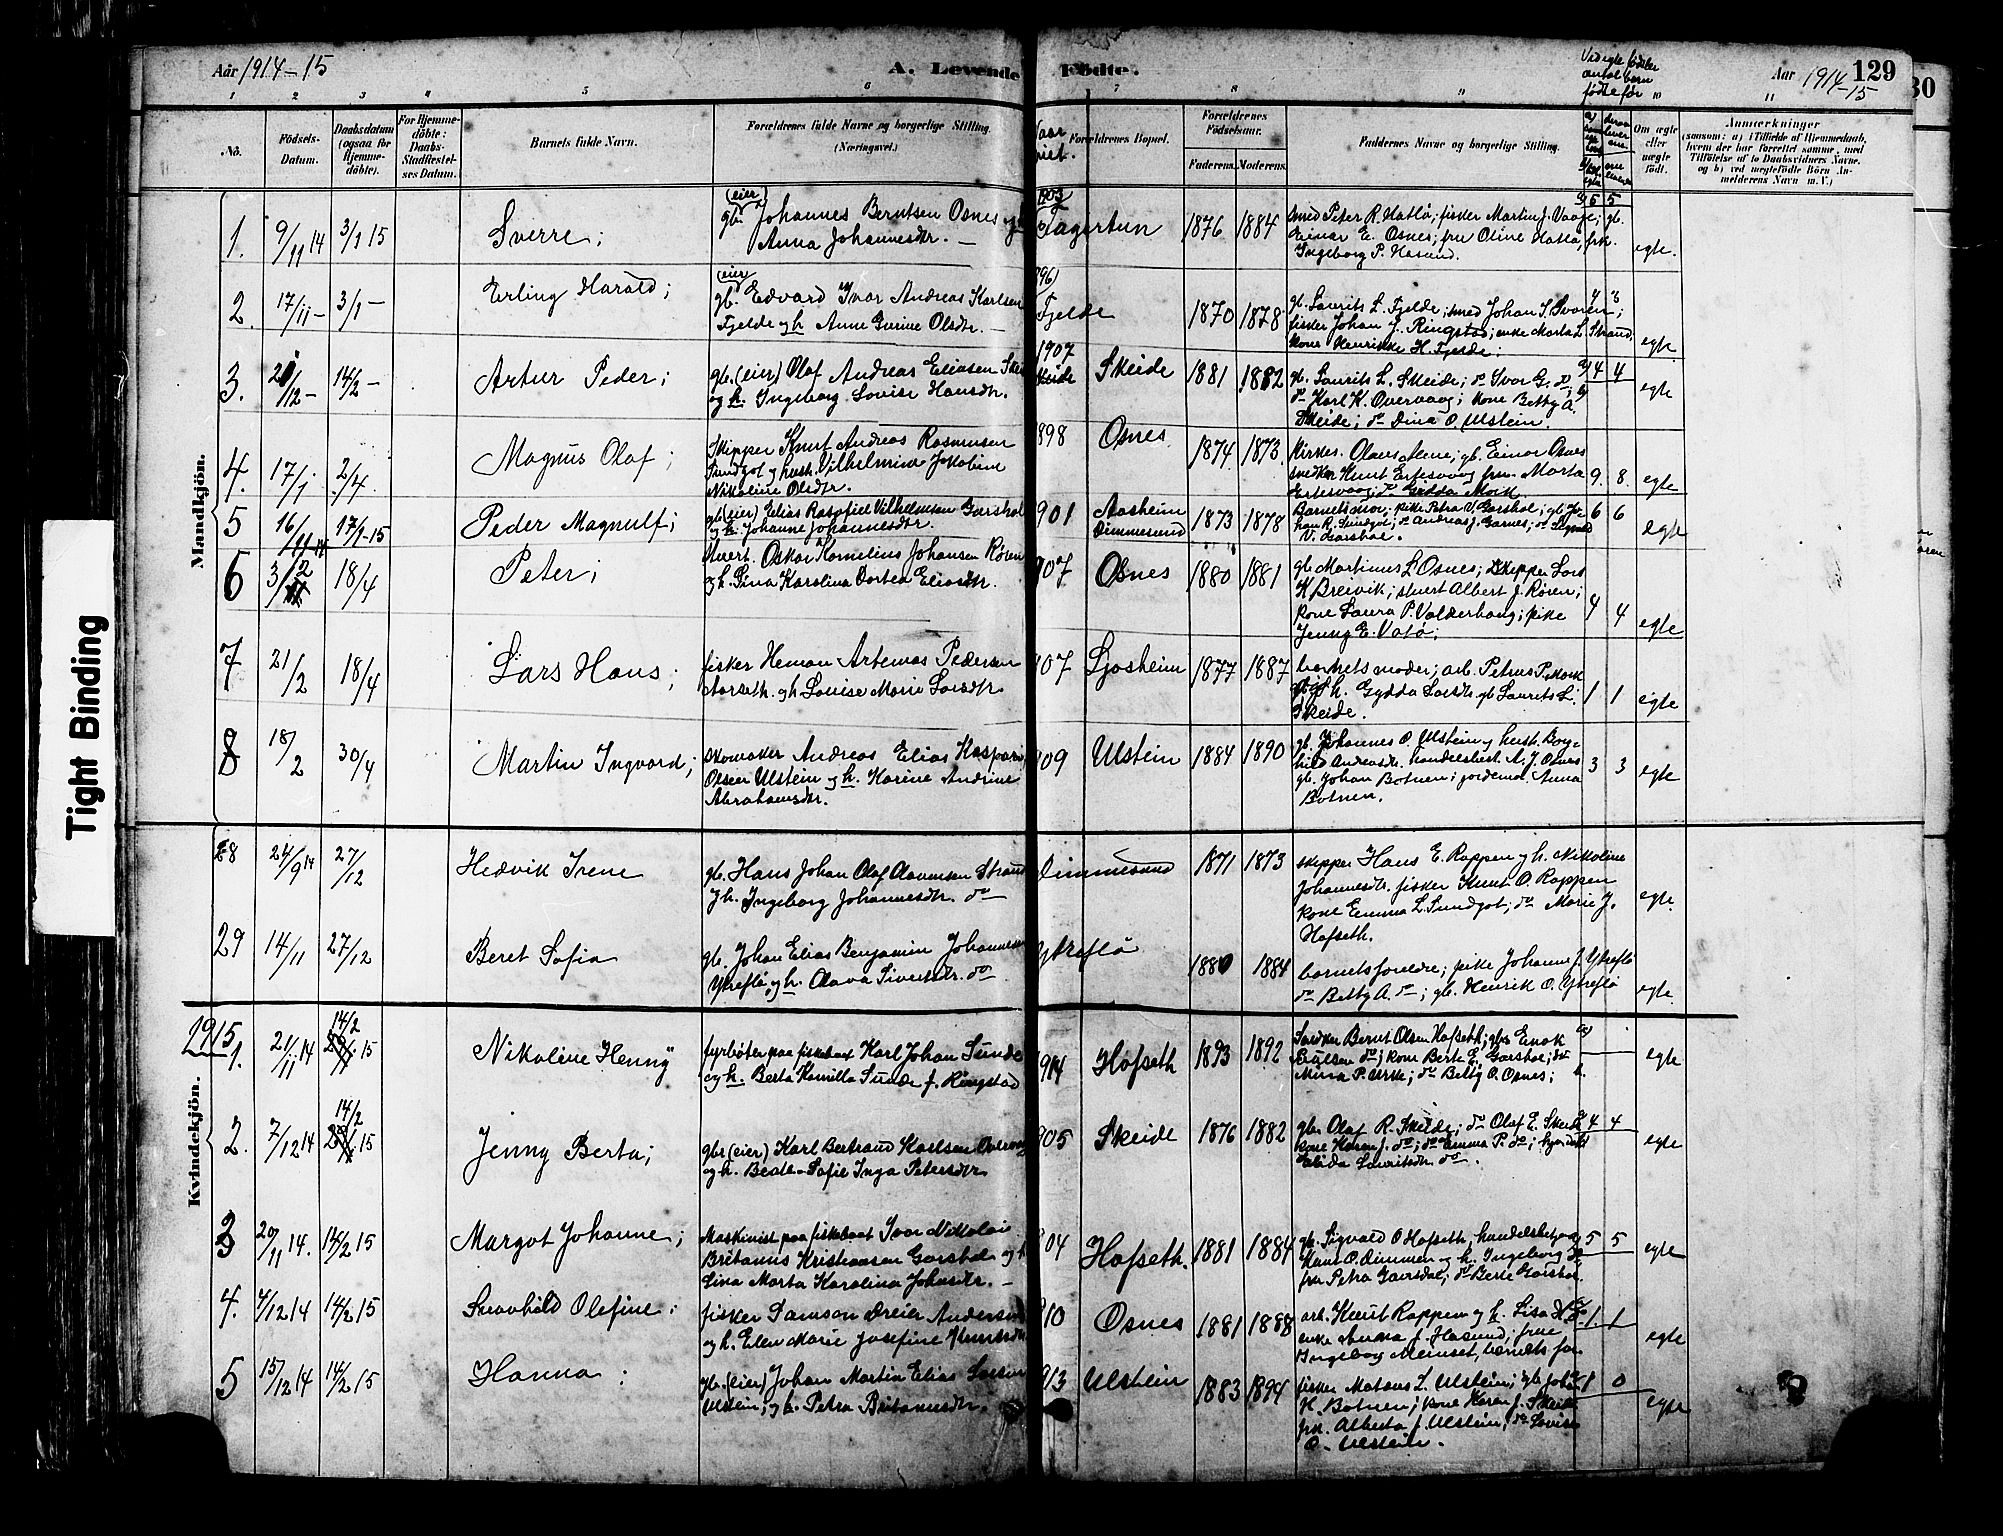 Aar 1914-15
A. Levende Fødte.
Aar 1914-15
129
30
Ved egte fødsler
antal børn
født før
1 2 3 4 5 6 7 8 9 10 11
No.
Fødsels-
Datum.
Daabsdatum
(ogsaa for
Hjemme-
døbte).
For Hjemme-
døbte:
Daabs-
Stadfæstel-
ses Datum.
Barnets fulde Navn.
Forældrenes fulde Navne og borgerlige Stilling.
(Næringsvei.)
Forældrenes Bopæl.
Forældrenes
Fødselsaar.
Faderens. Moderens.
Faddernes Navne og borgerlige Stilling.
Om ægte
eller
uægte
født.
Anmærkninger
(saasom: a) i Tilfælde af Hjemmedaab,
hvem der har forrettet samme, med
Tilføielse af to Daabsvidners Navne,
og b) ved uegtefødte Børn An-
melderens Navn m. V.)
Tight Binding
Mandkjøn.
1. 9/11 14 3/1 15 Sverre;
gb. (eier) Johannes Berntsen Osnes og h.
Anna Johannesdtr. —
1903 Fagertun 1876 1884
smed Peter R. Hatlø; fisker Martin J. Vaage; gb.
Einar E. Osnes; fru Oline Hatlø, frk.
Ingeborg P. Hasund.
6 5 egte.
2. 17/11 — 3/1 — Erling Harald;
gb. (eier) Edvard Ivar Andreas Karlsen
Fjelde og h. Anne Gurine Olsdtr. —
896 Fjelde 1870 1878
gb. Laurits L. Fjelde; smed Johan S. Svoren;
fisker Johan J. Ringstad; enke Marta L. Strand,
kone Henrikke H. Fjelde;
4 3 egte
3. 21/12 — 14/2 — Artur Peder;
gb. (eier) Olaf Andreas Eliasen Skeide
og h. Ingeborg Lovise Hansdtr.
1907 Skeide 1881 1882
gb. Laurits L. Skeide; do Ivar G. do; gb
do Karl K. Overvaag; kone Betty A.
Skeide; do Dina O. Ulstein.
4 4 egte
4. 17/1 2/4 Magnus Olaf;
Skipper Knut Andreas Rasmusen
Sundgot og hust. Vilhelmine Jakobine
Nikoline Olsdtr.
898 Osnes 1874 1873
Kirkes. Olaus Aene; gb. Einar Osnes
snedker Knut Ertesvaag fru Marta
Ertesvaag; do Gidda Mork
9. 8. egte
5 16/11-14 17/1-15 Peder Magnulf;
gb (eier) Elias Rasofiel Vilhelmsen Garshol
og h. Johanne Johannesdtr.
901 Aasheim
Dimmesund 1873 1878
Barnets mor; pike Petra V. Garshol; gb. Jo-
han R. Sundgot; do Andreas J. Garnes; do
V. Garshol.
6 6 egte
6 3/12 18/4 Peter;
stuert. Oskar Kornelius Johansen Røren
og h. Gina Karolina Dortea Eliasdtr.
907 Osnes 1880 1881
gb Martinus L Osnes; skipper Lars
K Breivik; stuert Albert J. Røren;
kone Laura P. Valderhaug; pike
Jenny E. Vatø;
4 4 egte
7 21/2 18/4 Lars Hans;
fisker Heman Artemas Pedersen
Aarseth og h Louise Marie Larsdtr
907 Ljosheim 1877 1887
barnets moder; arb. Petrus P. Mork
og h. Gydda Larsdtr. gb Laurits L.
Skeide.
1 1 egte
8 18/2 30/4 Martin Ingvard;
skomaker Andreas Elias Kasparin
Olsen Ulstein og h. Karine Andrine
Abrahamsdtr.
909 Ulstein 1884 1890
gb. Johannes O. Ulstein og hust. Borg-
hild Andreasdtr. handelsbest. A. J. Osnes
gb. Johan Botnen; jordemo. Anna
Botnen.
3 3 egte
28 24/9 14 27/12 Hedvik Irene
gb. Hans Johan Olaf Rasmusen Strand
og h. Ingeborg Johannesdtr. do —
Dimmesund 1871 1873
skipper Hans E. Roppen og h. Nikoline
Johannesdtr. fisker Knut O. Roppen
kone Emma L. Sundgot; do Marie J.
Hofseth.
egte.
29 14/11 27/12 Beret Sofia
gb. Johan Elias Benjamin Johannessen
Ytreflø, og h. Olava Sivertsdtr. do
Ytreflø 1880 1884
barnets foreldre; pike Johanne J. Ytreflø
do Betty A. do; gb. Henrik O. Ytreflø
egte.
1915
Kvindekjøn.
1. 21/11 14 14/2 15 Nikoline Henny
fyrbøter paa fiskebaat Karl Johan Sunde
og h. Berta Kamilla Sunde f. Ringstad
914 Hofseth 1893 1892
Snedker Bernt Olsen Hofseth; gbr Enok
Paulsen do; kone Berte E. Garshol; do
Mina P. Urke; do Betty O. Osnes;
egte
2. 7/12 14 14/2 15 Jenny Berta;
gbr (eier) Karl Bertrand Karlsen Overvaag
og h. Beate-Sofie Inga Petersdtr
905 Skeide 1876 1882
gbr. Olaf R. Skeide; do Olaf E. Skeide
kone Karen J. do; do Emma P. do;
Elida Lauritsdtr. do.
4 4 egte
3 20/11 14. 14/2 15 Margot Johanne;
Maskinist paa fiskebaat Ivar Nikolai
Britanus Kristiansen Garshol og h
Lina Marta Karolina Johnsdtr. —
904 Hofseth. 1881 1884
gb. Sigvald O Hofseth; handelsbetj.
Hans O. Dimmen og h. Ingeborg
fru Petra Garsdal; do Berte Garshol
5 5 egte
4. 4/12 14 14/2 15 Svovhild Olefine;
fisker Samson Dreier Andersen
og h. Elen Marie Josefine Knutsdtr
910 Osnes 1881 1888
arb. Knut Roppen og h. Lisa
enke Anna J. Hasund; frue
Ingeborg Meinset, barnets far
1. 1 egte
5 15/12 14 14/2 15 Hanna;
gb. (eier) Johan Martin Elias Larsen
Ulstein; og h. Petra Britanusdtr.
913 Ulstein 1883 1894
fisker Mataus L. Ulstein; gb Johan
K. Botnen; kone Karen J. Skeide
frk. Alberta J. Ulstein; do Lovise
O. Ulstein.
1 0 egte